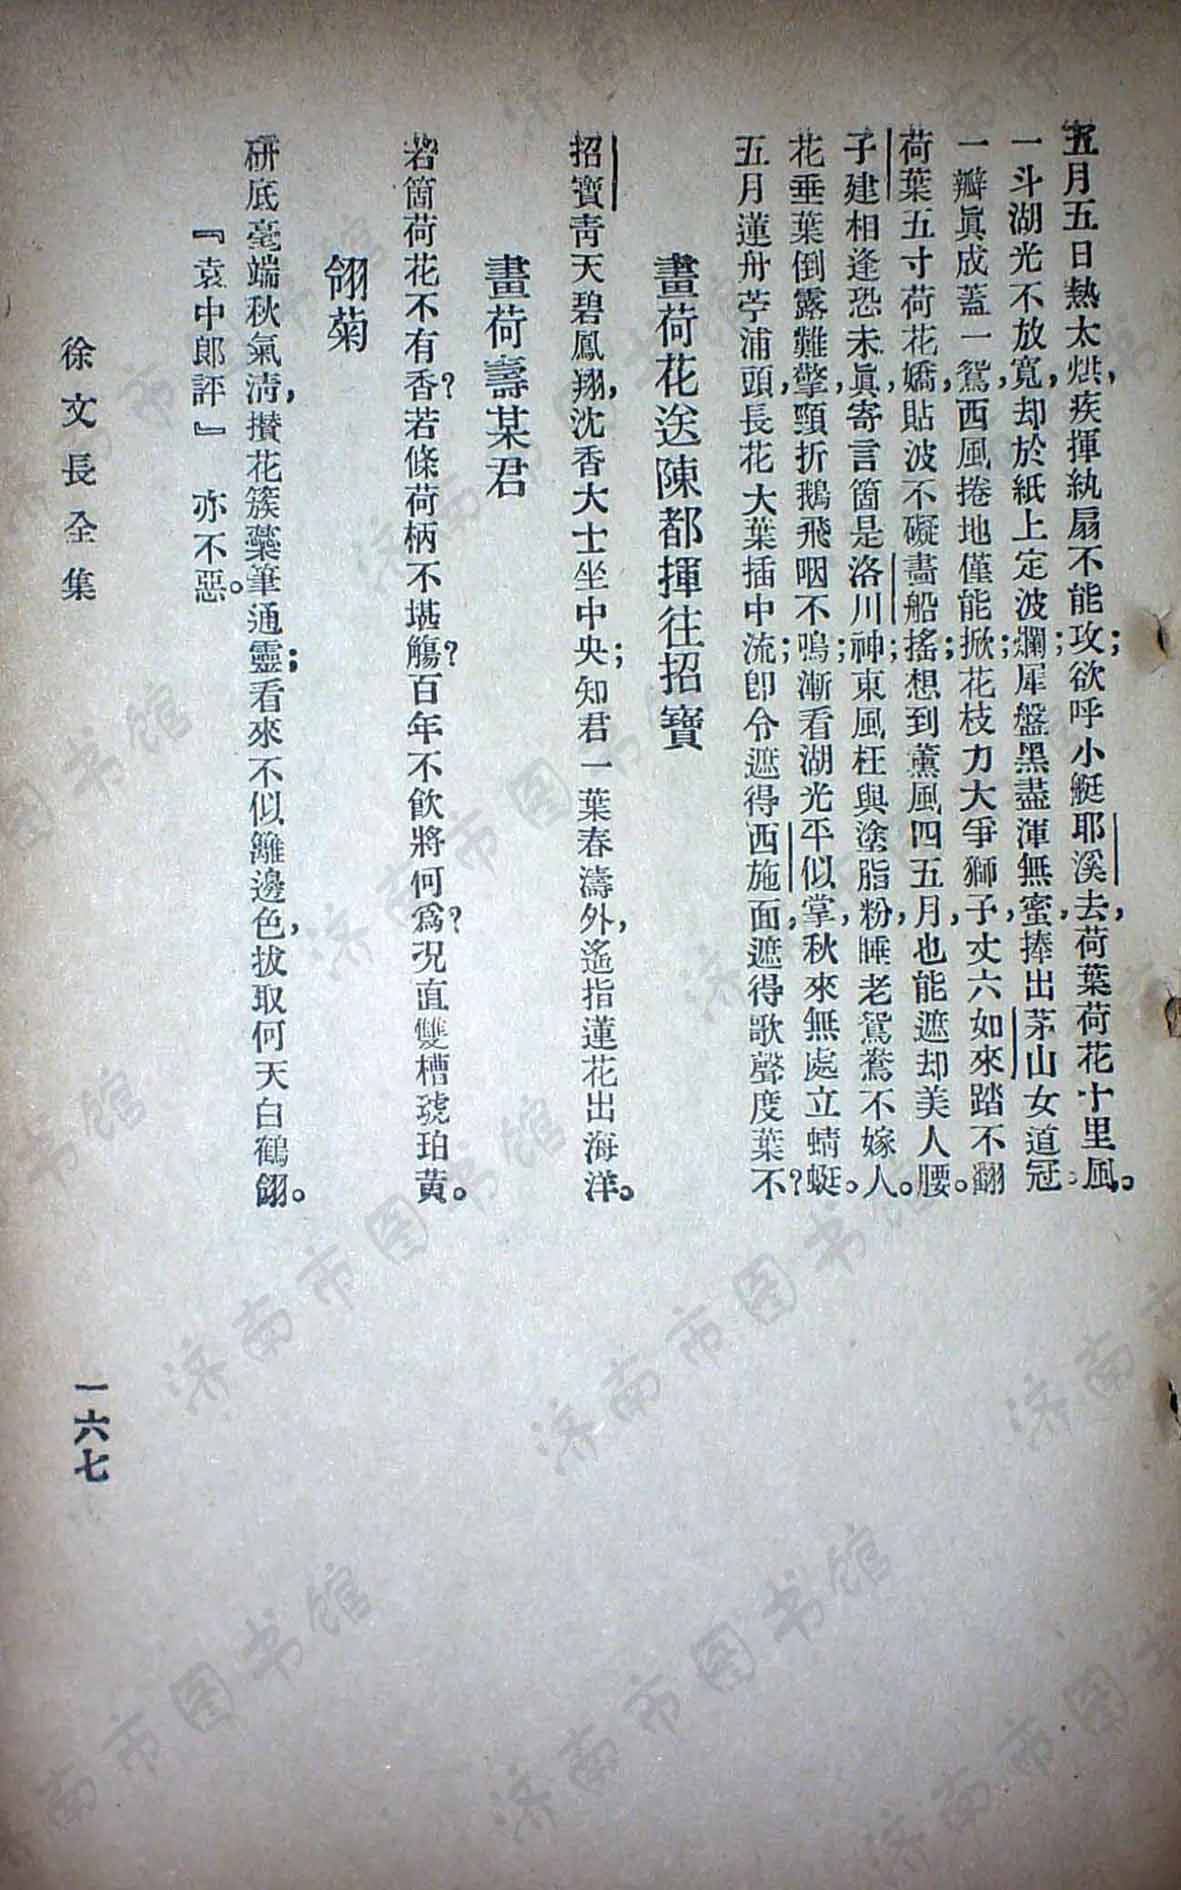 五月五日熱太烘，疾揮紈扇不能攻；欲呼小艇耶溪去，荷葉荷花十里風。
一斗湖光不放寬，却於紙上定波瀾；犀盤黑盡渾無蜜，捧出茅山女道冠。
一瓣眞成蓋一鴛，西風捲地僅能掀；花枝力大爭獅子，丈六如來踏不翻。
荷葉五寸荷花嬌，貼波不礙畵船搖；想到薰風四五月，也能遮却美人腰。
子建相逢恐未眞，寄言箇是洛川神；東風枉與塗脂粉，睡老鴛鴦不嫁人。
花垂葉倒露難擎，頸折鵝飛咽不鳴；漸看湖光平似掌，秋來無處立蜻蜓。
五月蓮舟苧浦頭，長花大葉插中流；卽令遮得西施面，遮得歌聲度葉不？
畫荷花送陳都揮往招寶
招寶靑天碧鳳翔，沈香大士坐中央；知君一葉春濤外，遙指蓮花出海洋。
畫荷壽某君
若箇荷花不有香？若條荷柄不堪觴？百年不飮將何爲？况直雙槽琥珀黃。
翎菊
硏底毫端秋氣淸，攢花簇蘂筆通靈；看來不似籬邊色，拔取何天白鶴翎。
『袁中郞評』　亦不惡。
徐文長全集
一六七
济南市图书馆